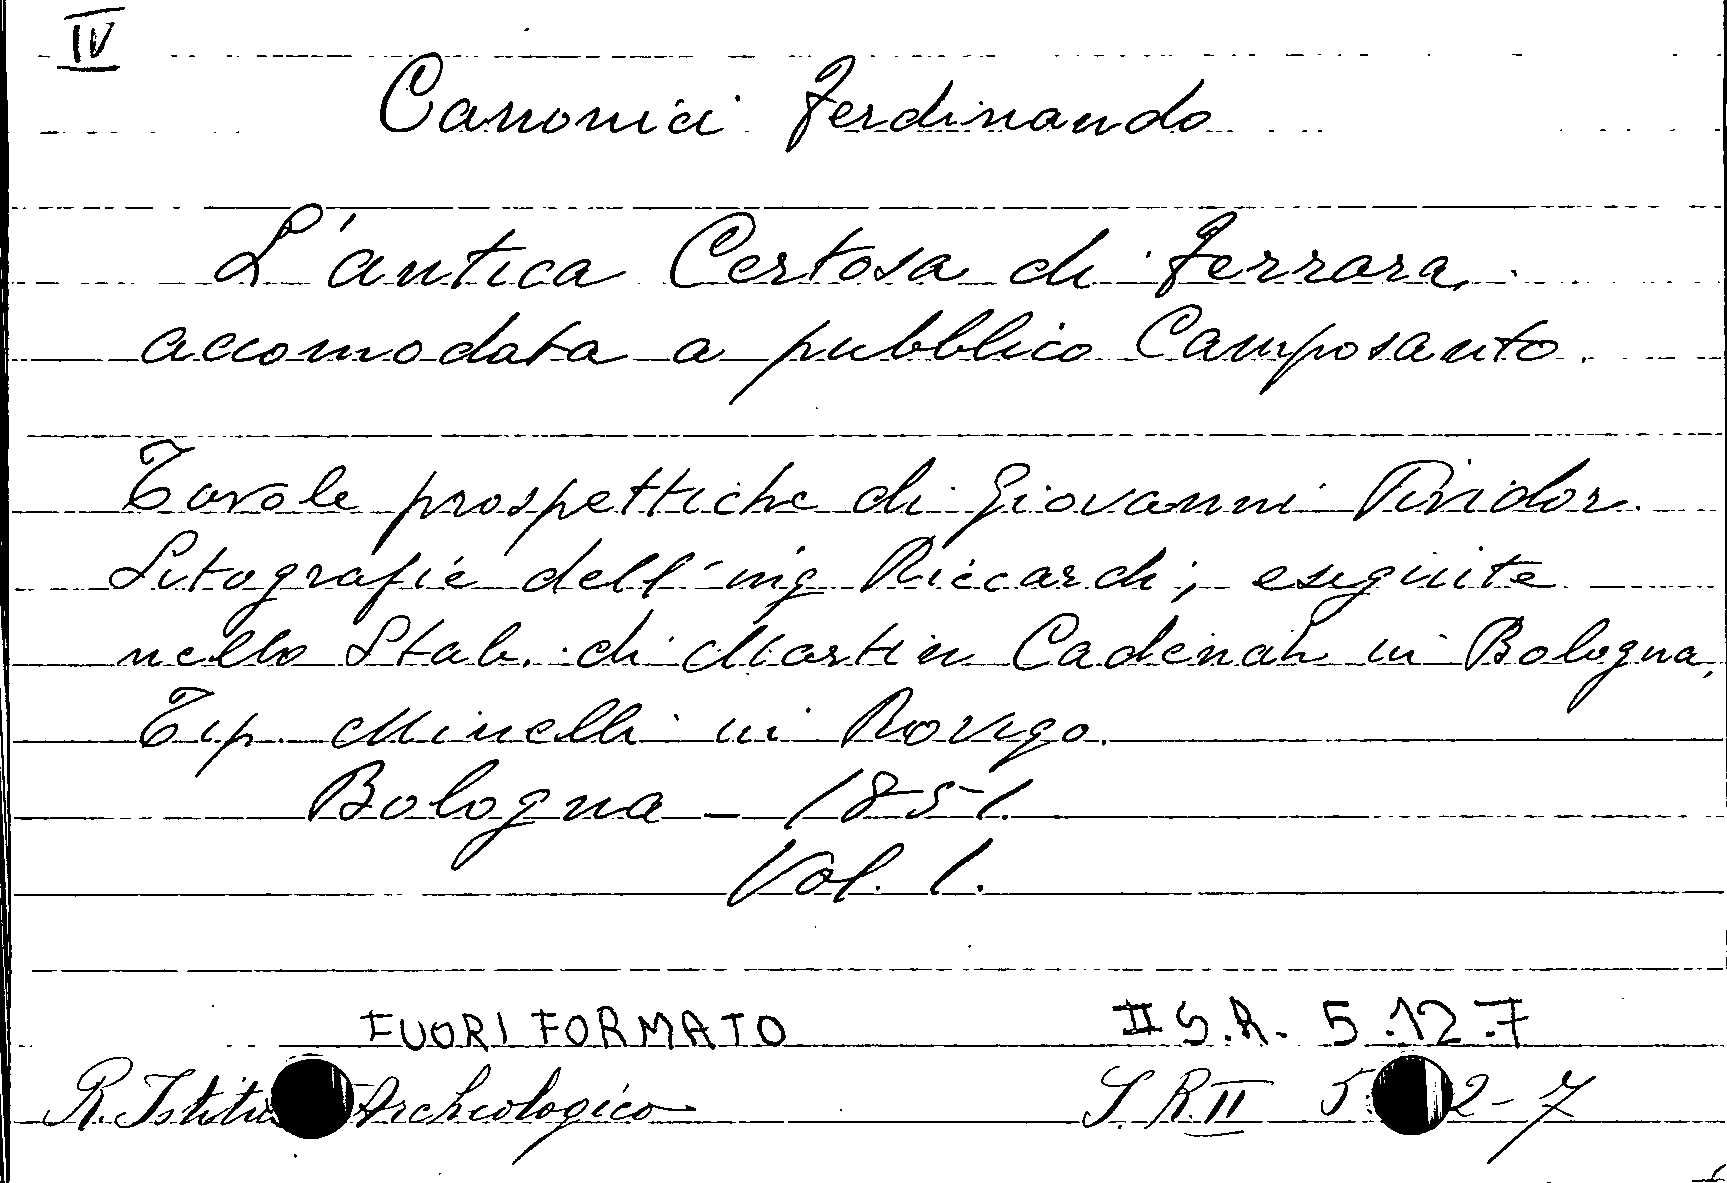 IV
Canonici Ferdinando
L'antica Certosa di Ferrara,
accomodata a pubblico Camposanto.
Tavole prospettiche di Giovanni Pividor.
Litografie dell'ing Riccardi, eseguite
nello Stab. di Martin Cadenah in Bologna,
Tip. Minelli in Rovigo.
Bologna - 1851.
Vol. 1.
FUORI FORMATO II S.R. 5.12.7
R. Istitu Archeologico S. R. II 5 2-7